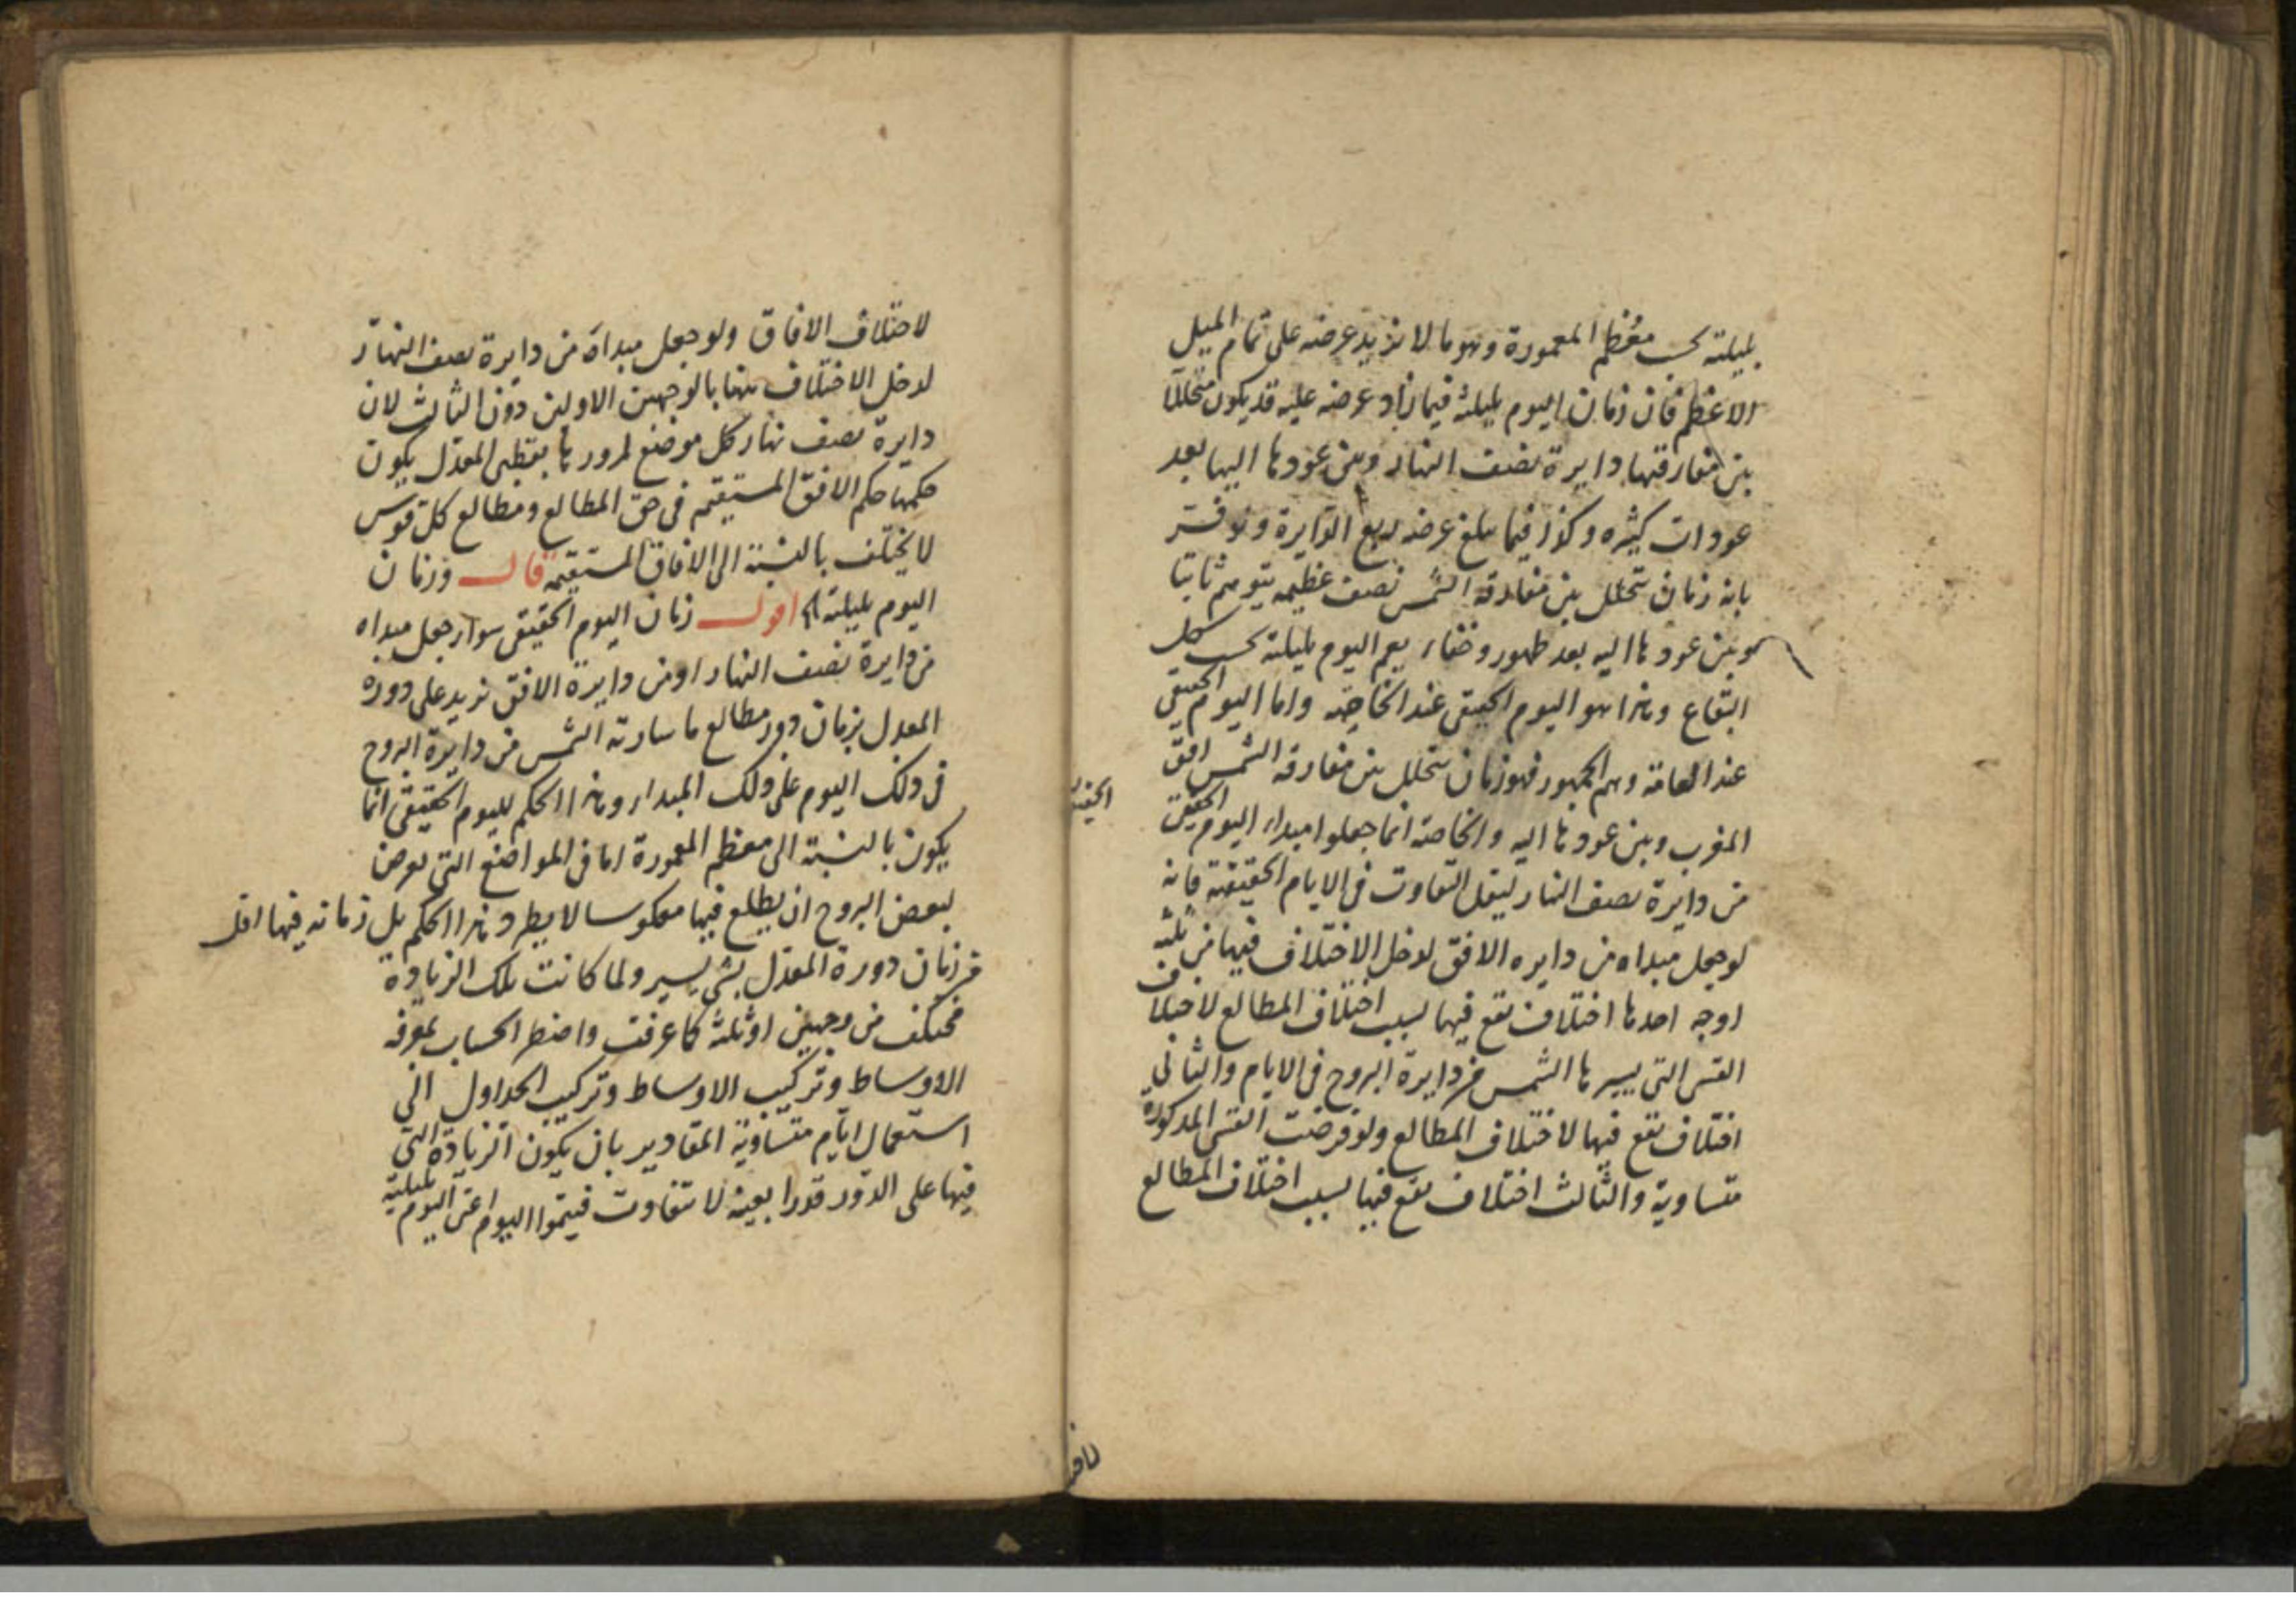 بليلته بحسب معظم المعمورة وهو ما لا يزيد عرضه على تمام الميل
الاعظم فان زمان اليوم بليلته فيما زاد عرضه عليه قد يكون متخللا
بين مفارقتها دايرة نصف النهار وبين عودها اليها بعد
عودات كثيره وكذا فيما بلغ عرضه ربع الدايرة ولو فسر
بانه زمان يتخلل بين مفارقة الشمس نصف عظيمه يتوهم ثابتا
وبين عودها اليه بعد ظهور وخفاء يعم اليوم بليلته بحسب كل
البقاع وهذا هو اليوم الحقيقى عند الخاصه واما اليوم الحقيقي
عند العامة وهم الجمهور فهو زمان يتخلل بين مفارقة الشمس افق
المغرب وبين عودها اليه والخاصة انما جعلوا مبداء اليوم الحقيقى
من دايرة نصف النهار ليقل التفاوت فى الايام الحقيقية فانه
لو جعل مبداه من دايره الافق لدخل الاختلاف فيها من ثلثه
اوجه احدها اختلاف يقع فيها بسبب اختلاف المطالع لاختلاف
القسى التى يسيرها الشمس من دايرة البروج فى الايام والثانى
اختلاف يقع فيها لاختلاف المطالع ولو فرضت القسى المذكورة
متساوية والثالث اختلاف يقع فيها بسبب اختلاف المطالع
لاختلاف الافاق ولو جعل مبداه من دايرة نصف النهار
لدخل الاختلاف بالوجهين الاولين دون الثالث لان
دايرة نصف نهار كل موضع لمرورها بقطبى المعدل يكون
حكمها حكم الافق المستقيم فى حق المطالع ومطالع كل قوس
لا يختلف بالنسبة الى الافاق المستقيمة قال وزمان
اليوم بليلته الخ اقول زمان اليوم الحقيقى سواء جعل مبداه
من دايرة نصف النهار او من دايرة الافق يزيد على دورة
المعدل بزمان دور مطالع ما سارته الشمس من دايرة البروج
فى ذلك اليوم على ذلك المبداء وهذا الحكم لليوم الحقيقى انما
يكون بالنسبة الى معظم المعمورة اما فى المواضع التى يعرض
لبعض البروج ان يطلع فيها معكوسا لا يطرد هذا الحكم بل زمانه فيها اقل
من زمان دورة المعدل بشى يسير ولما كانت تلك الزيادة
مختلف من وجهين او ثلثة كما عرفت واضطر الحساب لمعرفة
الاوساط وتركيب الاوساط وتركيب الجداول الى
استعمال ايام متساوية المقادير بان يكون الزيادة التى
فيها على الدور قدرا بعينه لا تتفاوت فيتموا اليوم اعنى اليوم بليليته